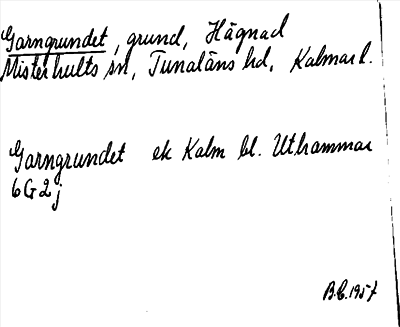 Garngrundet, grund, Hägnad
Misterhults sn, Tunaläns hd, Kalmar l.
Garngrundet ek Kalm bl. Uthammar
6G2j
B.E. 1957